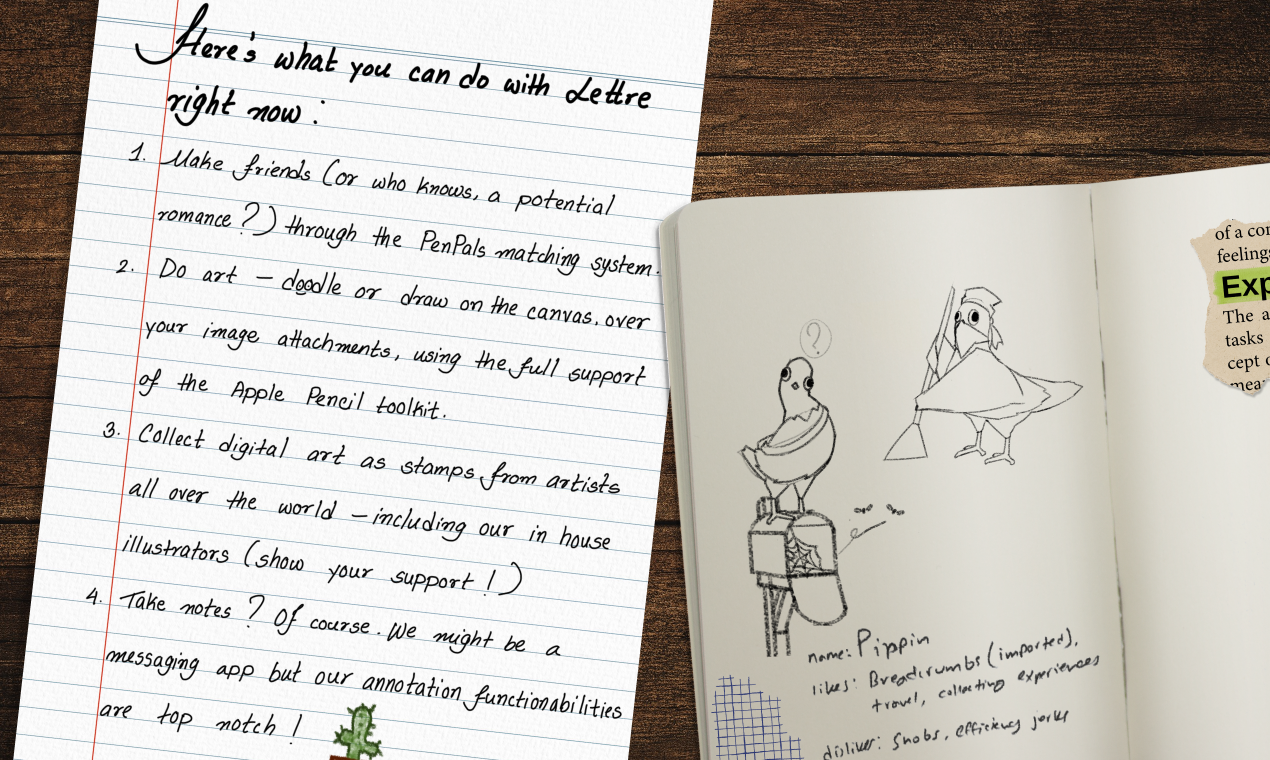 Here's what you can do with Lettre
right now :
1. Make friends (or who knows, a potential
romance?) through the PenPals matching system.
2. Do art – doodle or draw on the canvas, over
your image attachments, using the full support
of the Apple Pencil toolkit.
3. Collect digital art as stamps from artists
all over the world – including our in house
illustrators (show your support!)
4. Take notes? Of course. We might be a
messaging app but our annotation functionabilities
are top notch!
?
name: Pippin
likes: Breadcrumbs (imported),
travel, collecting experiences
dislikes: Snobs, efficiency jerks
of a
feelings
The
tasks